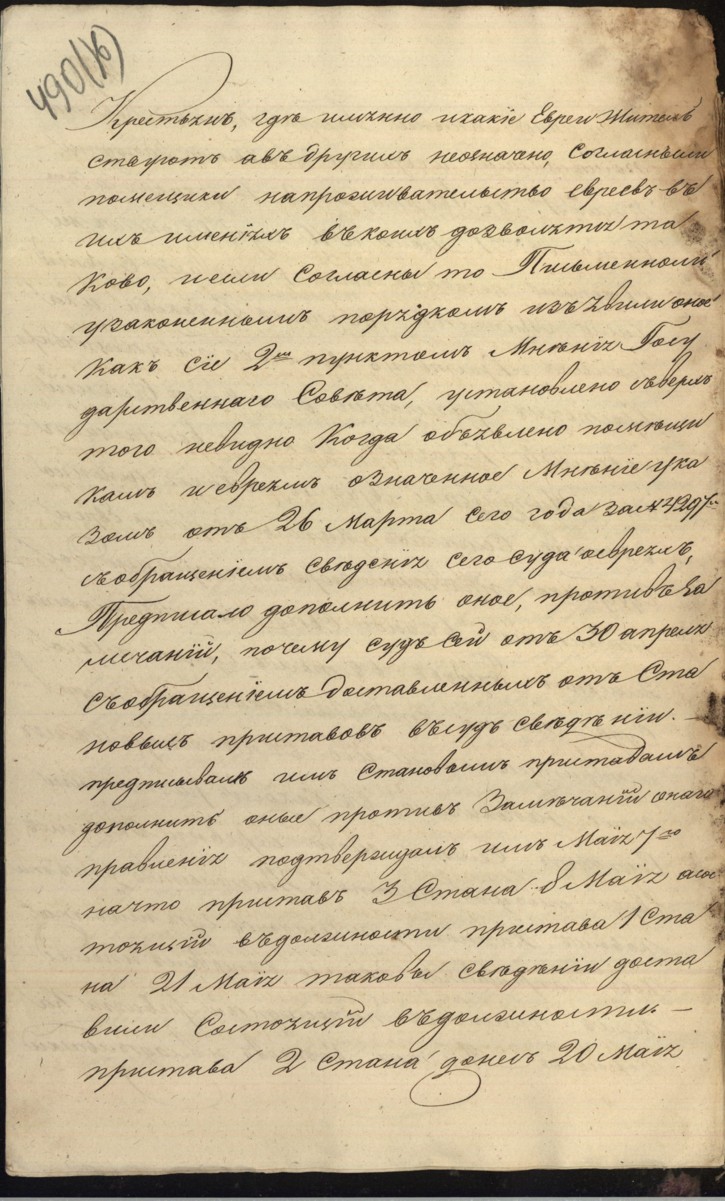 490(16)
Крестьянъ, где именно икакіе Евреи Житель
ствуютъ авъ другихъ неозначено, согласныли
помещики напроживательство евреевъ въ
ихъ именіяхъ въкоихъ дозволяется та
ково, иесли Согласны то Письменноли
узаконеннымъ порядкомъ изъявили оное
Какъ сіе 2мъ пунктомъ Мненія Госу
дарственнаго Совета, установлено съверхъ
того невидно Когда объявлено помещи
камъ иевреямъ означенное Мненіе ука
зомъ отъ 26 Марта сего года за №4297мъ
съобращеніемъ сведенія сего суда оевреяхъ,
Предписало дополнить оное, противъ За
мечаній, почему судъ Сей отъ 30 апреля
съобращеніемъ доставленныхъ отъ Ста
новыхъ приставовъ въсудъ сведеніи. —
предписывалъ имъ Становымъ приставамъ
дополнить оные противъ Замечаній онаго
правленія подтверждалъ имъ Маія 7го
начто приставъ 3 Стана 8 Маія асос
тоящій въдолжности пристава 1 Ста
на 21 Маія таковые сведеніи доста
вили Состоящій въдолжности —
пристава 2 Стана донесъ 20 Маія